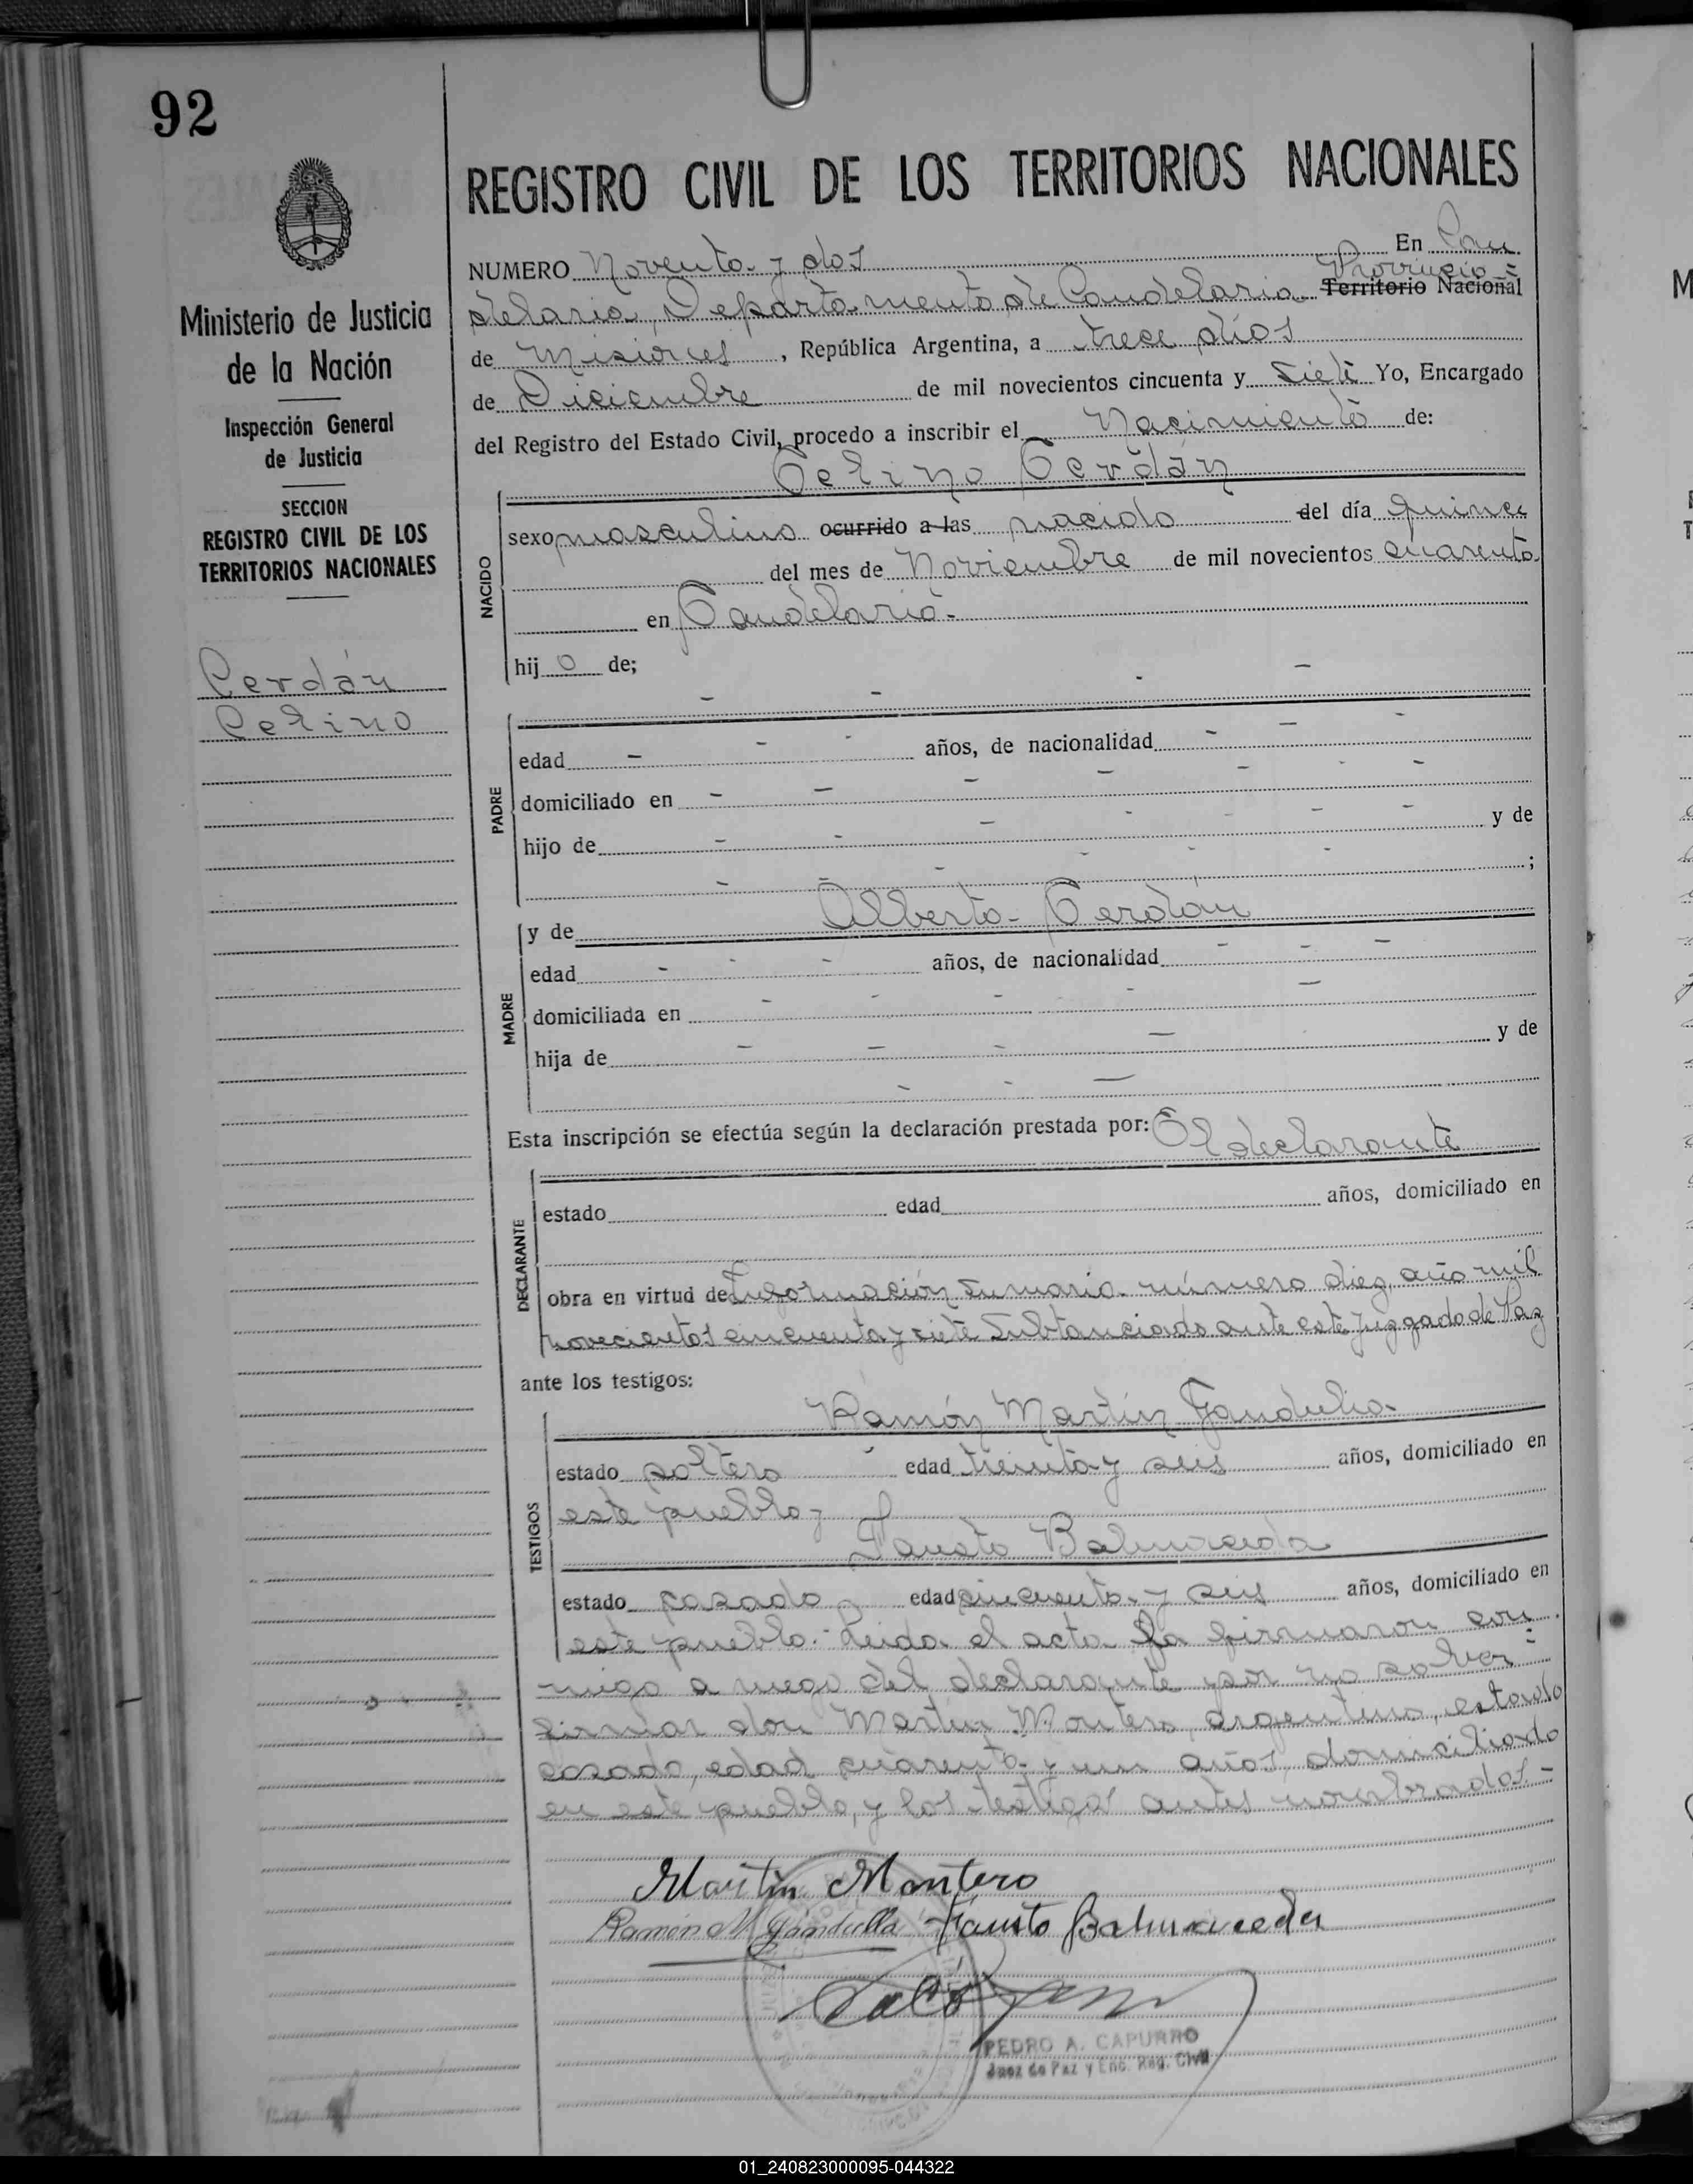 92
REGISTRO CIVIL DE LOS TERRITORIOS NACIONALES
Ministerio de Justicia
de la Nación
Inspección General
de Justicia
SECCION
REGISTRO CIVIL DE LOS
TERRITORIOS NACIONALES
Cerdán
Celino
NUMERO Noventa y dos En Can
delaria, Departamento de Candelaria Provincia =
Territorio Nacional
de Misiones, República Argentina, a trece días
de Diciembre de mil novecientos cincuenta y siete Yo, Encargado
del Registro del Estado Civil, procedo a inscribir el Nacimiento de:
Celino Cerdán
NACIDO
sexo masculino ocurrido a las nacido del día quince
del mes de Noviembre de mil novecientos cuarenta
en Candelaria.-
hij o de;
PADRE
edad - - - años, de nacionalidad - - -
domiciliado en - - - - - -
hijo de - - - - - - y de
- - - - - - ;
MADRE
y de Alberta Cerdán
edad - - - años, de nacionalidad - - -
domiciliada en - - - - -
hija de - - - - y de
- - -
Esta inscripción se efectúa según la declaración prestada por: El declarante
DECLARANTE
estado edad años, domiciliado en
obra en virtud de Información sumaria número diez, año mil
novecientos cincuenta y siete Subtanciado ante este Juzgado de Paz
ante los testigos:
TESTIGOS
Ramón Martín Gandulia
estado soltero edad treinta y seis años, domiciliado en
este pueblo y
Fausto Balmaceda
estado casado edad cincuenta y seis años, domiciliado en
este pueblo.- Leida el acta la firmaron con
migo a ruego del declarante por no saber =
firmar don Martín Montero, argentino, estado
casado, edad cuarenta y un años, domiciliado
en este pueblo, y los testigos antes nombrados =
Martin Montero
Ramón M Gandulla Fausto Balmaceda
PEDRO A. CAPURRO
Juez de Paz y Enc. Reg. Civil
01_240823000095-044322